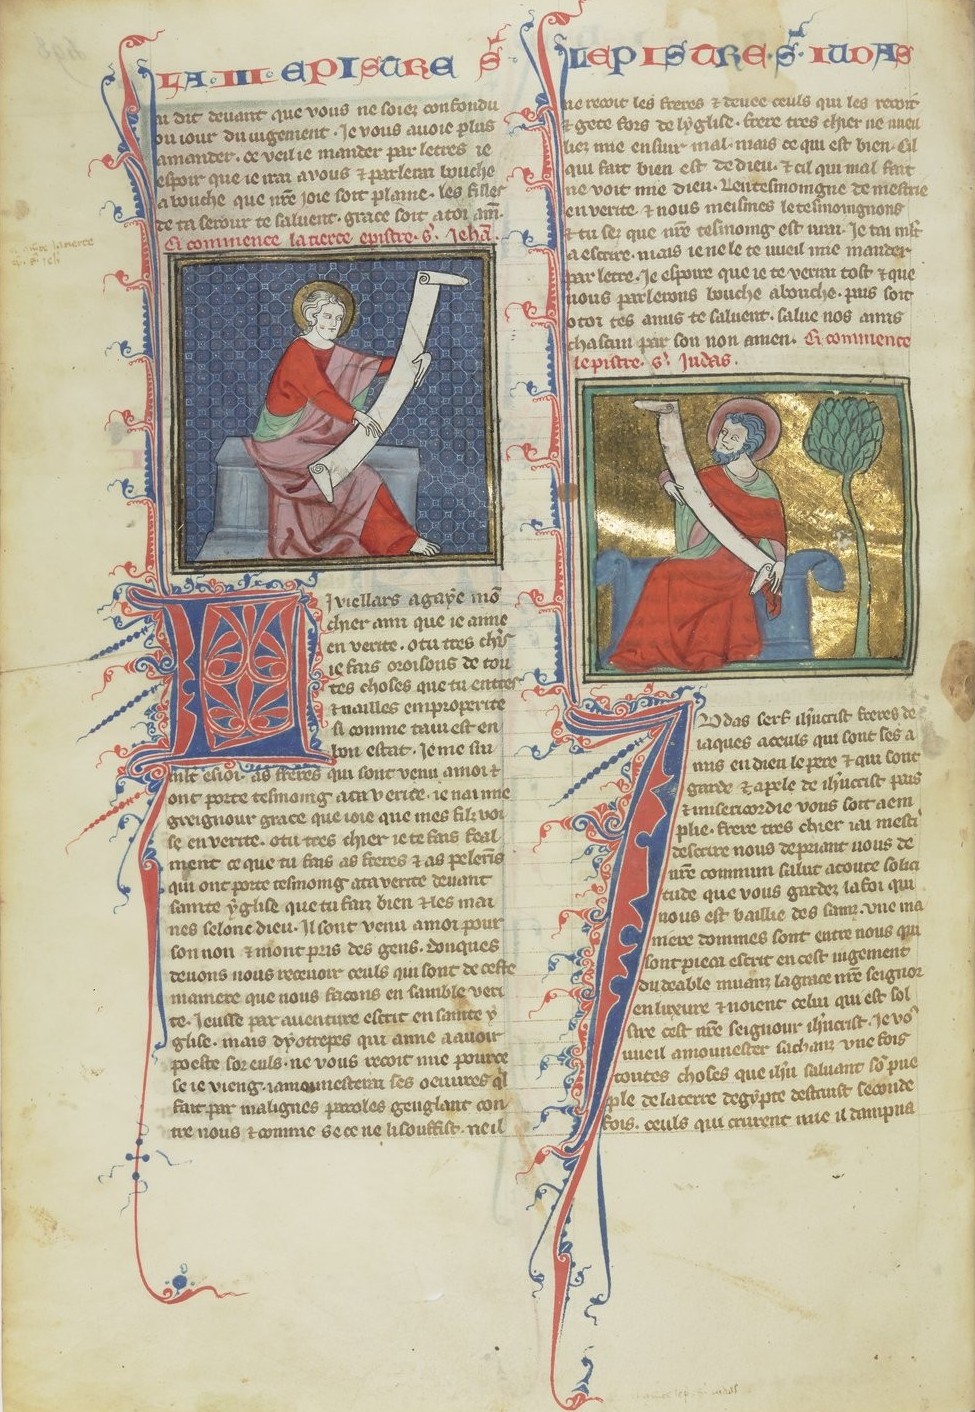 LA · III · EPISTRE S
LEPISTRE · S · IUDAS
a dit deuant que vous ne soiez confondu
ou iour du iugement · Je vous auoie plus
a mander · ce veil ie mander par letres ie
espoir que ie irai a vous ⁊ parlerai bouche
a bouche que nr̄e ioie soit plaine · les filles
de ta serour te saluent · grace soit a toi am̄ ·
Ci commence la tierce epistre · s · Jehā ·
viellars a gaye mō
chier ami que ie aime
en verite · o tu tres chr̄s
ie fais oroisons de tou
tes choses que tu entres
⁊ uailles en properite
si comme taui est en
bon estat · Je me sui
as freres qui sont venu a moi ⁊
ont porte tesmoing a ta verite · ie nai mie
greignour grace que ioie que mes filz voi
se en verite · o tu tres chier ie te fais feal
ment ce que tu fais as freres ⁊ as pelerīs
qui ont porte tesmoing a ta verite deuant
sainte yglise que tu faiz bien ⁊ les mai
nes selonc dieu · Il sont venu a moi pour
son non ⁊ mont pris des gens · donques
deuons nous receuoir ceuls qui sont de ceste
maniere que nous facons en samble veri
te · Jeusse par auenture escrit en sainte y
glise · mais dyotrepes qui aime a auoir
poeste sor euls · ne vous recoit mie pource
se ie vieng · iamounesterai ses oeuures q̄l
fait par malignes paroles genglant con
tre nous ⁊ comme se ce ne li souffist · ne il
ne recoit les freres ⁊ deuee ceuls qui les recoit
⁊ gete fors de lyglise · frere tres chier ne uueil
liez mie ensuir mal · mais ce qui est bien · Cil
qui fait bien est de dieu · ⁊ cil qui mal fait
ne voit mie dieu · Lentesmoingne de mestrie
en verite · ⁊ nous meismes le tesmoingnons
⁊ tu sez que nr̄e tesmoing est urai · Je tai
a escrire · mais ie ne le te uueil mie mander
par letre · Je espoire que ie te verrai tost ⁊ que
nous parlerons bouche a bouche · pais soit
o toi tes amis te saluent · salue nos amis
chascun par son non amen · Ci commence
lepistre · s · Judas ·
Vdas serf ih̄ucrist freres de
iaques a ceuls qui sont ses a
mis en dieu le pere ⁊ qui sont
garde ⁊ apele de ih̄ucrist pais
⁊ misericordie vous soit aem
plie · frere tres chier iai mesti
descrire nous depriant uous de
ur̄e commun salut a toute solici
tude que vous gardez la foi qui
nous est baillie des sainz · vne ma
niere dommes sont entre nous qui
sont pieca escrit en cest iugement
du deable muanz la grace nr̄e seignor
en luxure ⁊ noient celui qui est sol
sire cest nr̄e seignour ih̄ucrist · Je vo
uueil amounester sachanz vne fois
toutes choses que ih̄u saluant so pue
ple de la terre degypte destruist seconde
fois · ceuls qui crurent mie il dampna